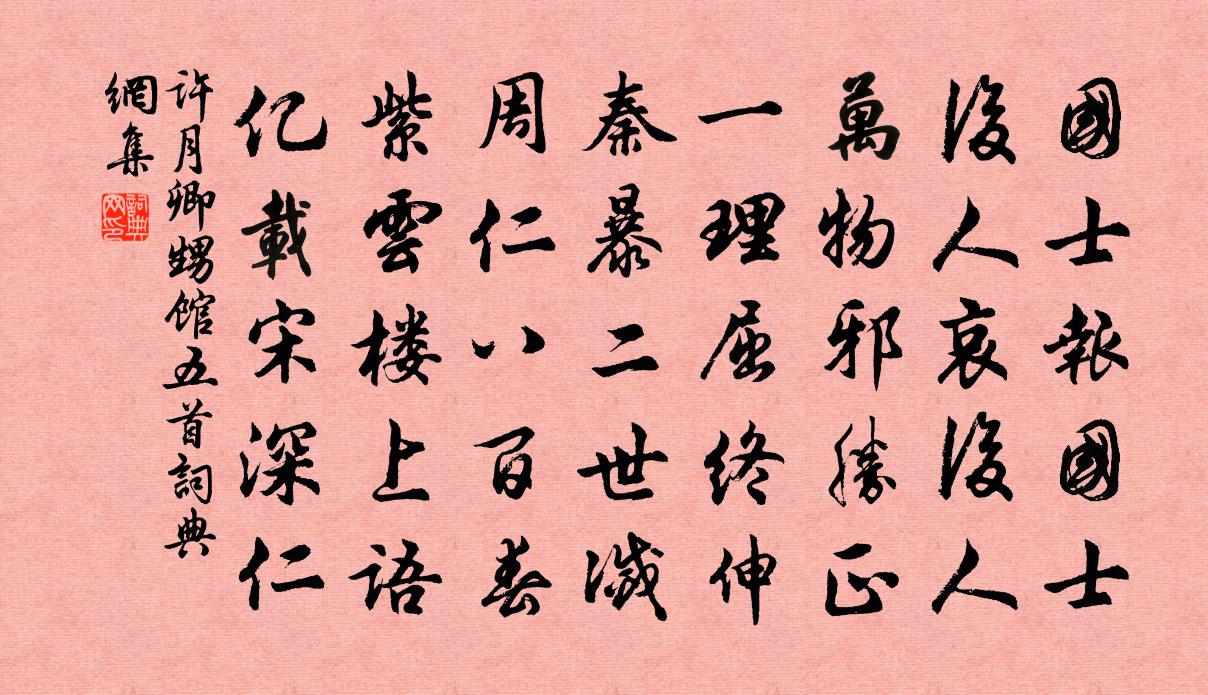 國士報國士
後人哀後人
萬物邪勝正
一理屈終伸
秦暴二世滅
周仁八百春
紫雲楼上語
亿載宋深仁
许月卿甥馆五首詞典
網集
詞典
网印